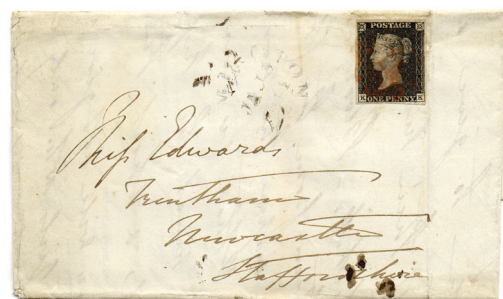 POSTAGE
ONE PENNY
Miſs Edwards
Trentham
Newcastle
Staffordshire